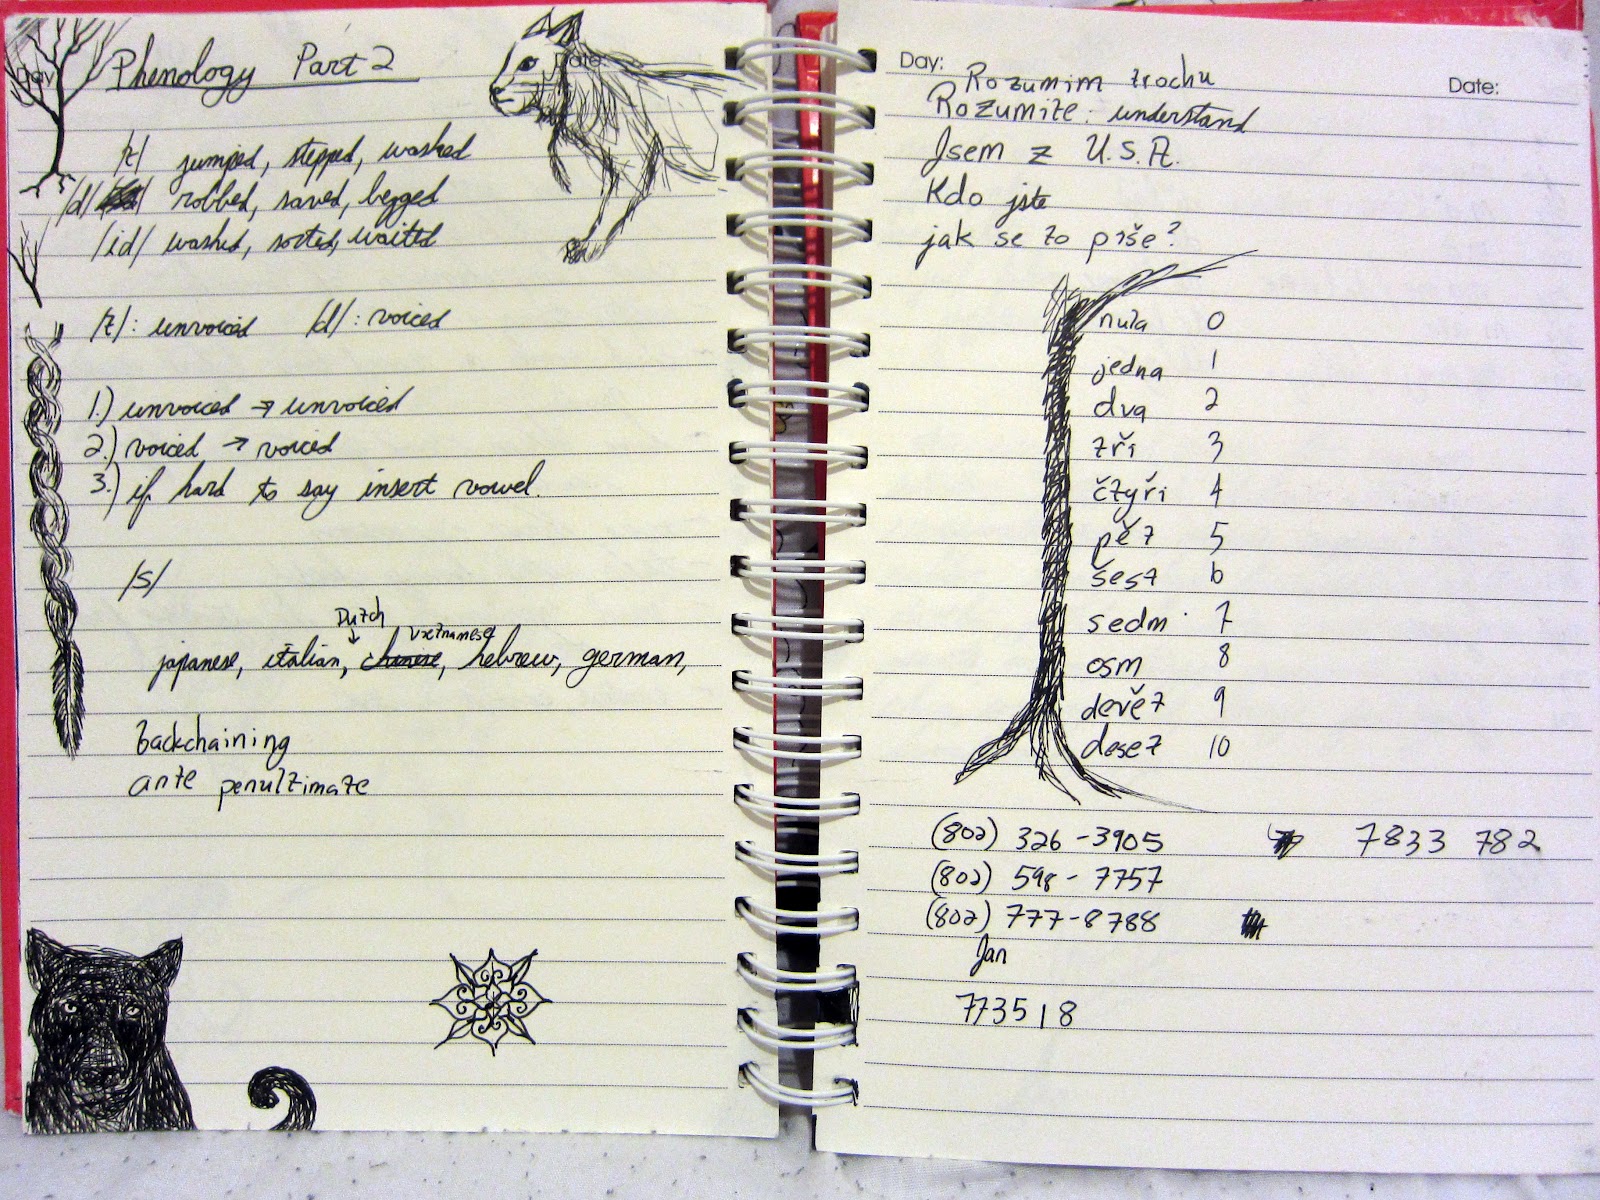 Day
Date:
Phenology Part 2
/t/ jumped, stepped, washed
/d/ robbed, saved, begged
/id/ washed, sorted, waited
/t/: unvoiced /d/: voiced
1.) unvoiced → unvoiced
2.) voiced → voiced
3.) if hard to say insert vowel.
/s/
Dutch
vietnamese
japanese, italian, chinese, hebrew, german,
backchaining
ante penultimate
Day:
Date:
Rozumim trochu
Rozumite: understand
Jsem z U.S.A.
Kdo jste
jak se to píše?
nula 0
jedna 1
dva 2
tři 3
čtyři 4
pět 5
šest 6
sedm 7
osm 8
devět 9
deset 10
(802) 326-3905 7833 782
(802) 598-7757
(802) 777-8788
Jan
773518